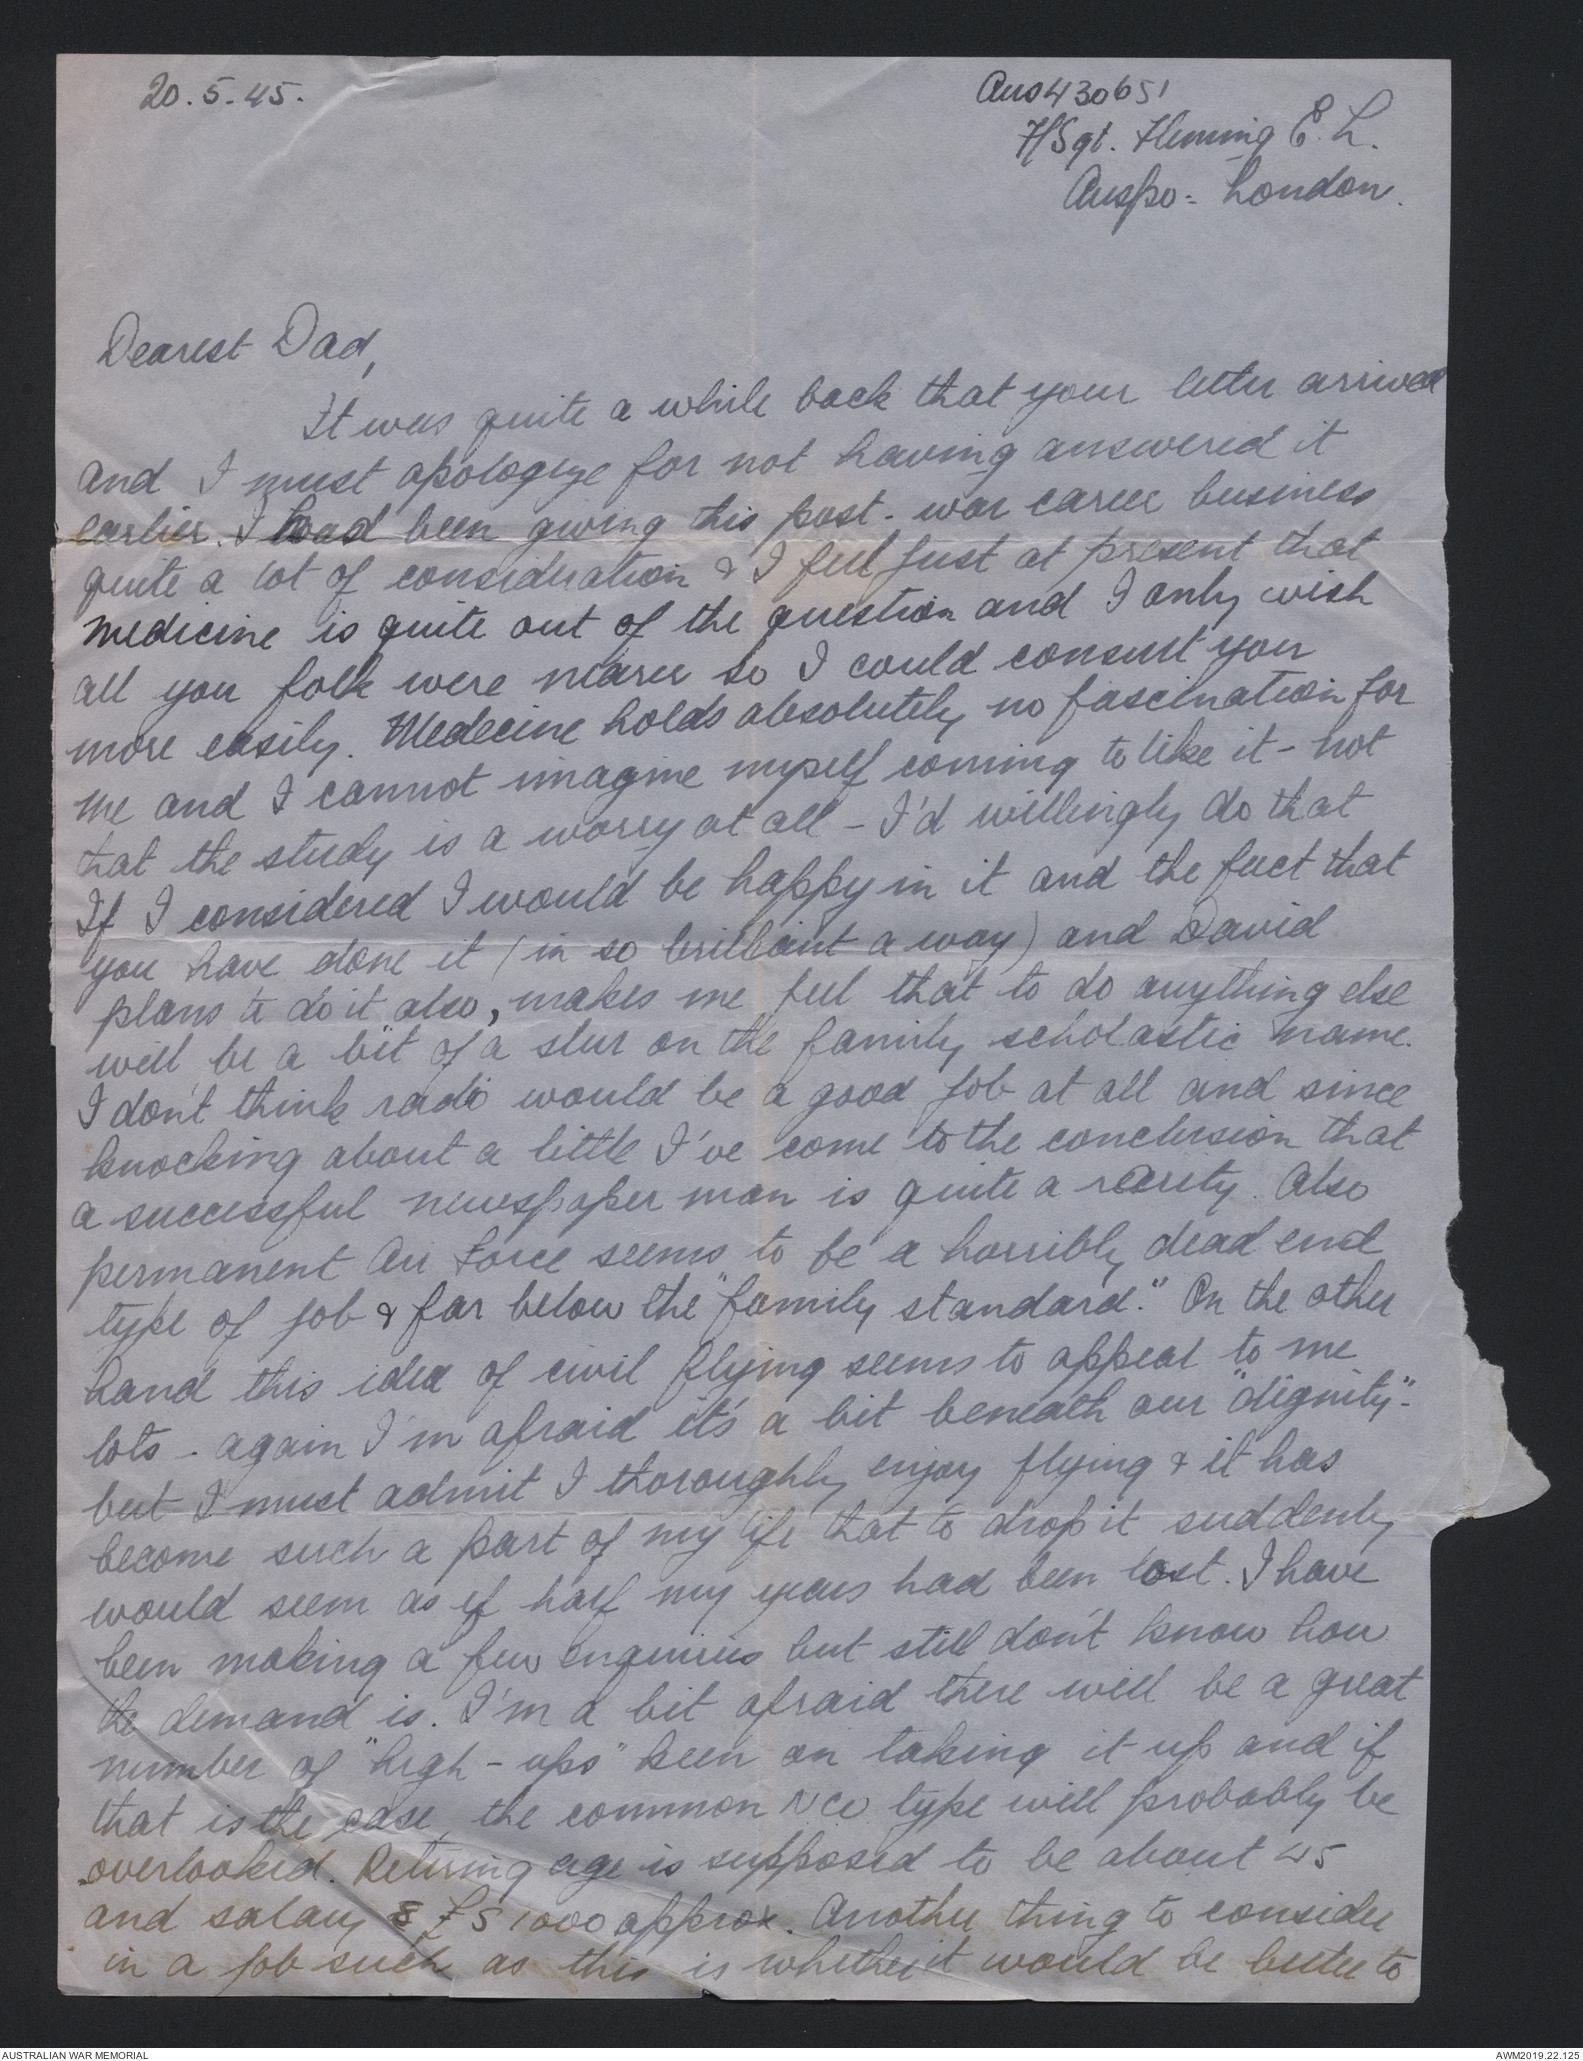 20.5.45.
Aus430651
F/Sgt. Fleming E. L.
Auspo - London.
Dearest Dad,
It was quite a while back that your letter arrived
and I must apologize for not having answered it
earlier. I had been giving this post-war career business
quite a lot of consideration & I feel just at present that
medicine is quite out of the question and I only wish
all you folk were nearer so I could consult you
more easily. Medecine holds absolutely no fascination for
me and I cannot imagine myself coming to like it - not
that the study is a worry at all - I'd willingly do that
If I considered I would be happy in it and the fact that
you have done it (in so brilliant a way) and David
plans to do it also, makes me feel that to do anything else
will be a bit of a slur on the family scholastic name.
I don't think radio would be a good job at all and since
knocking about a little I've come to the conclusion that
a successful newspaper man is quite a rarity. Also
permanent Air Force seems to be a horribly dead end
type of job & far below the "family standard." On the other
hand this idea of civil flying seems to appeal to me
lots - again I'm afraid it's a bit beneath our "dignity" -
but I must admit I thoroughly enjoy flying & it has
become such a part of my life that to drop it suddenly
would seem as if half my years had been lost. I have
been making a few enquiries but still don't know how
the demand is. I'm a bit afraid there will be a great
number of "high-ups" keen on taking it up and if
that is the case, the common NCO type will probably be
overlooked. Retiring age is supposed to be about 45
and salary £S 1000 approx. Another thing to consider
in a job such as this is whether it would be better to
AUSTRALIAN WAR MEMORIAL
AWM2019.22.125